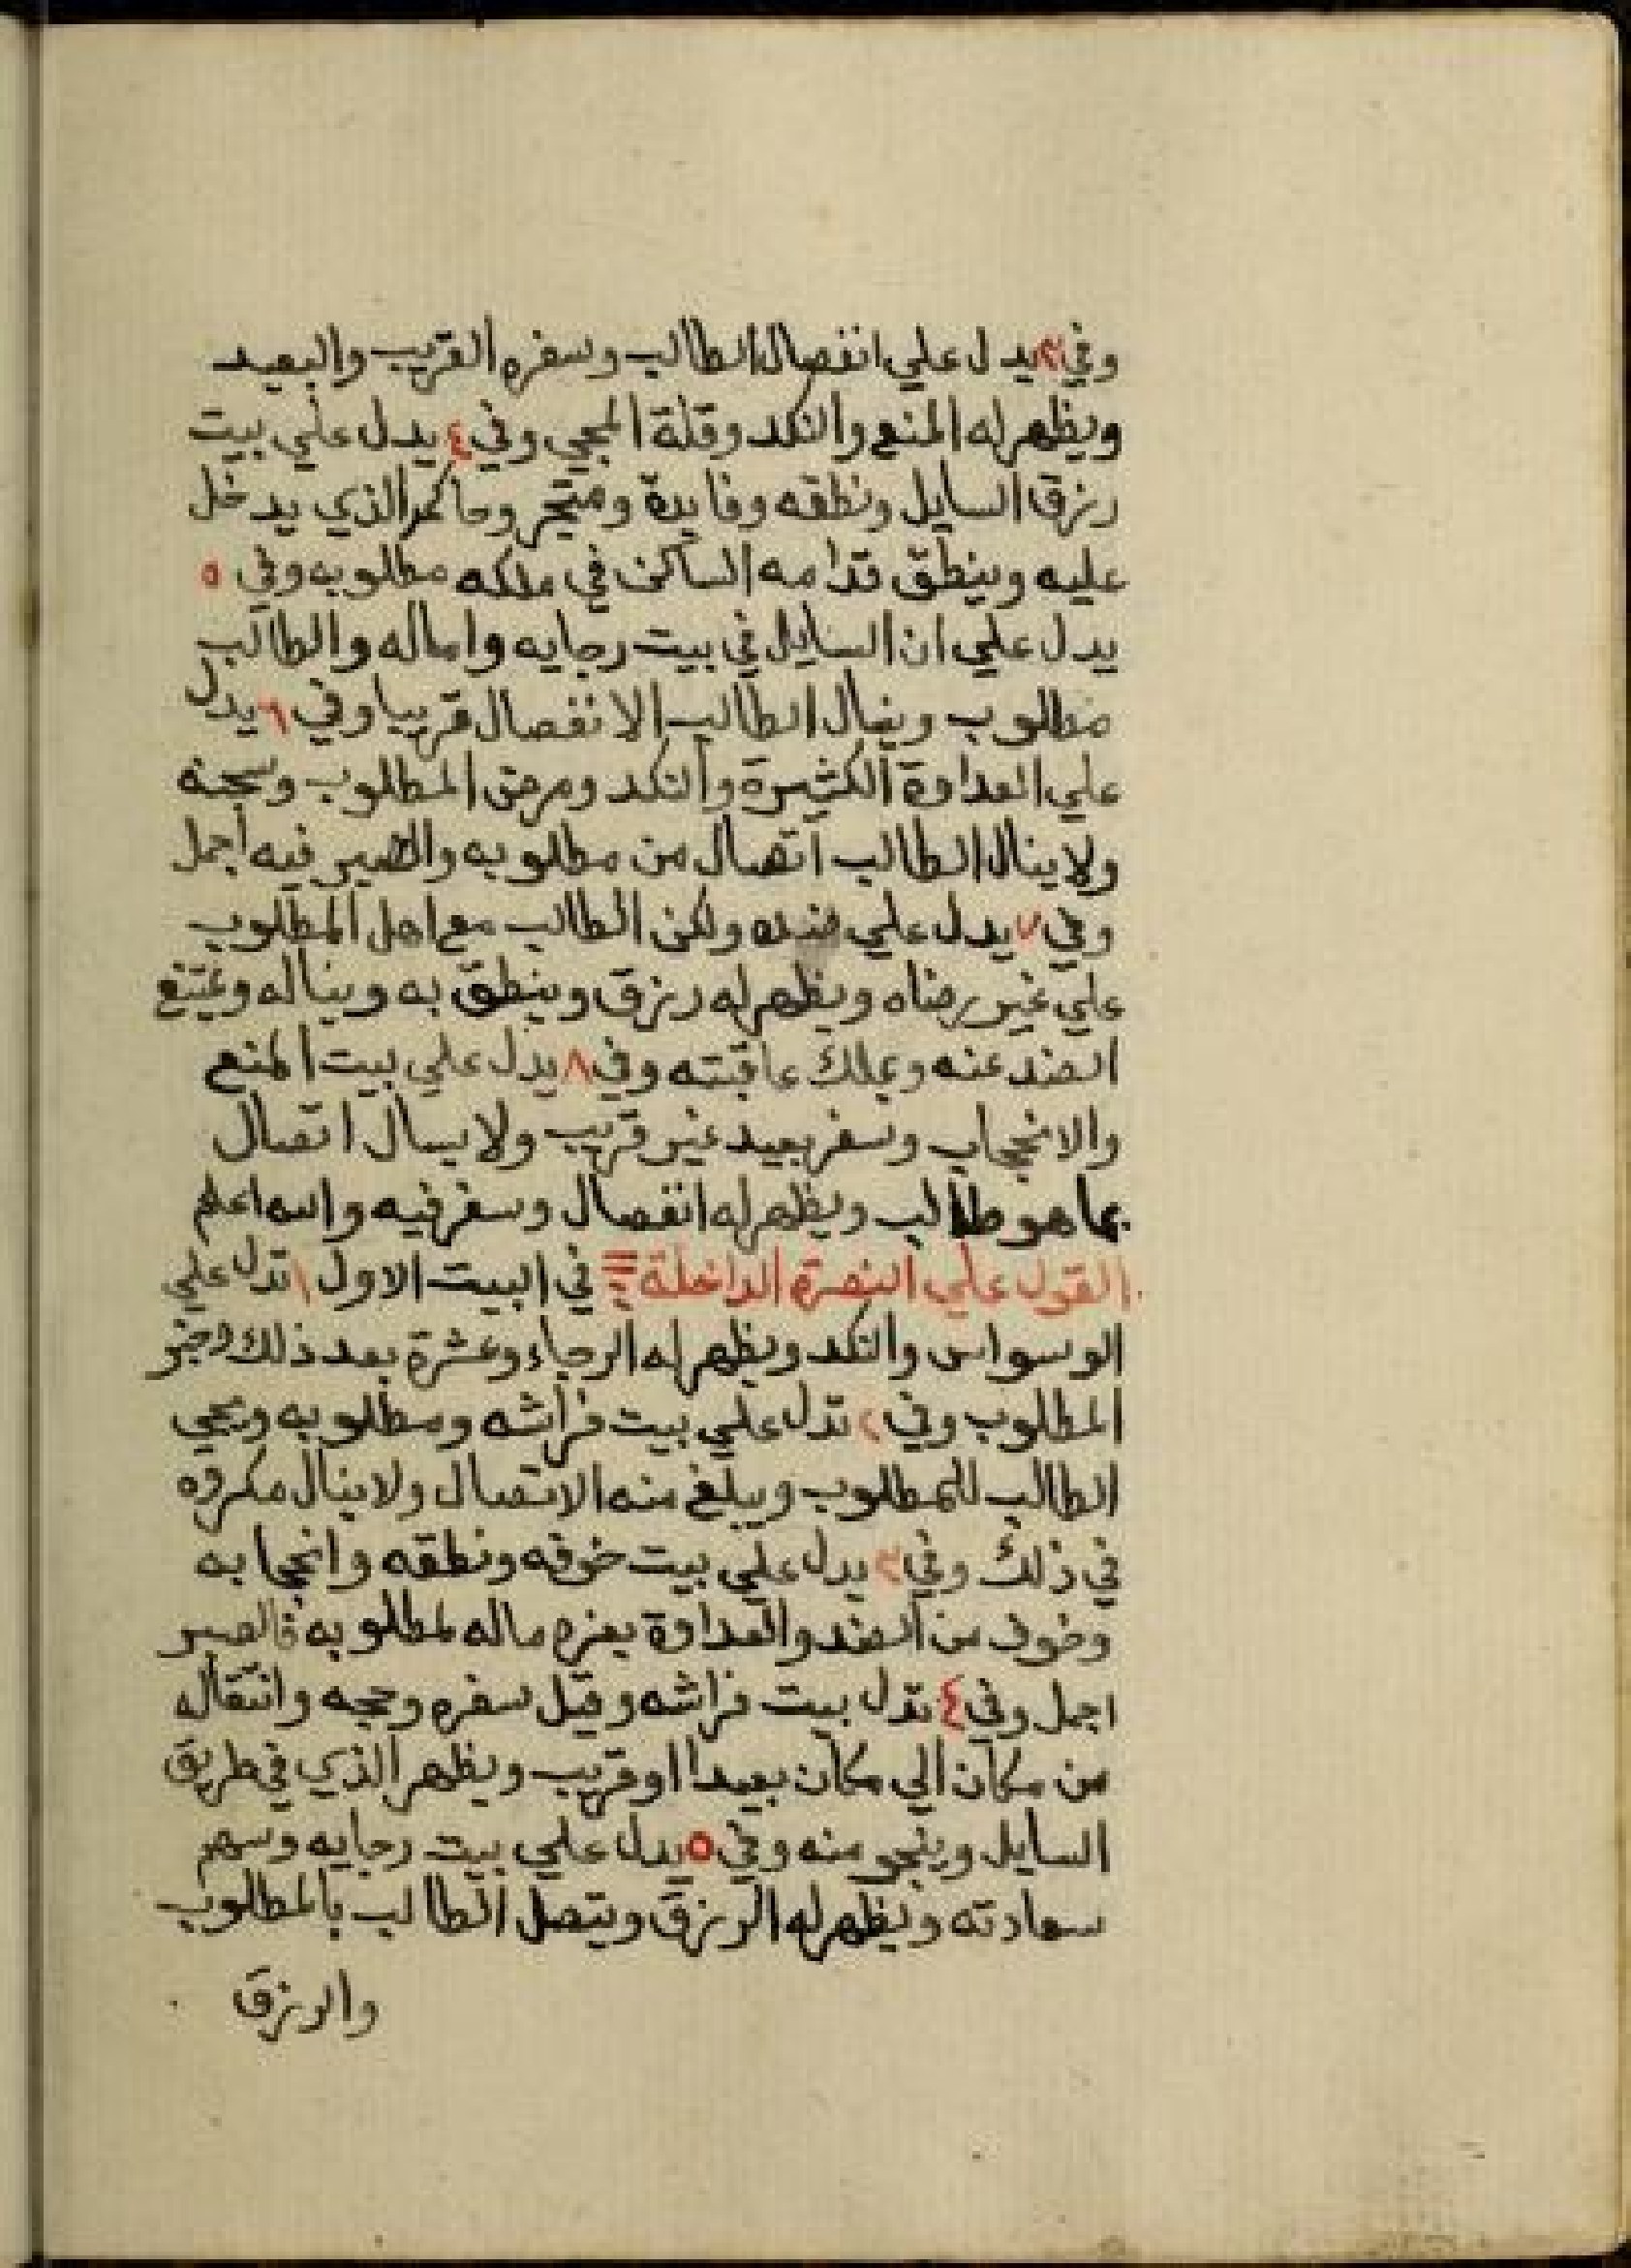 وفي ٣ يدل علي انفصال الطالب وسفره القريب والبعيد
ويظهر له المنع والنكد وقلة المجي وفي ٤ يدل علي بيت
رزق السايل ونطقه وفايدة ومتجر وحاكم الذي يدخل
عليه وينطق قدامه الساكن في ملكه مطلوبه وفي ٥
يدل علي ان السايل في بيت رجايه واماله والطالب
مطلوب وينال الطالب الانفصال قريبا وفي ٦ يدل
علي العداوة الكثيرة والنكد ومرض المطلوب وسجنه
ولا ينال الطالب اتصال من مطلوبه والصبر فيه اجمل
وفي ٧ يدل علي ضده ولكن الطالب مع اهل المطلوب
علي غير رضاه ويظهر له رزق وينطق به ويناله ويمتنع
الضد عنه ويملك عاقبته وفي ٨ يدل علي بيت المنع
والانحجاب وسفر بعيد غير قريب ولا يسال اتصال
بما هو طالب ويظهر له انفصال وسفر فيه والله اعلم
القول علي النصرة الداخلة في البيت الاول ١ تدل علي
الوسواس والنكد ويظهر له الرجاء وعشرة بعد ذلك وخبر
المطلوب وفي ٢ تدل علي بيت فراشه ومطلوبه ويجي
الطالب للمطلوب ويبلغ منه الاتصال ولا ينال مكروه
في ذلك وفي ٣ يدل علي بيت خوفه ونطقه وانحجابه
وخوف من الضد والعداوة يغرم ماله لمطلوبه فالصبر
اجمل وفي ٤ تدل بيت فراشه وقيل سفره وحجه وانتقاله
من مكان الي مكان بعيدا او قريب ويظهر الذي في طريق
السايل وينجو منه وفي ٥ يدل علي بيت رجايه وسهم
سعادته ويظهر له الرزق ويتصل الطالب بالمطلوب
والرزق